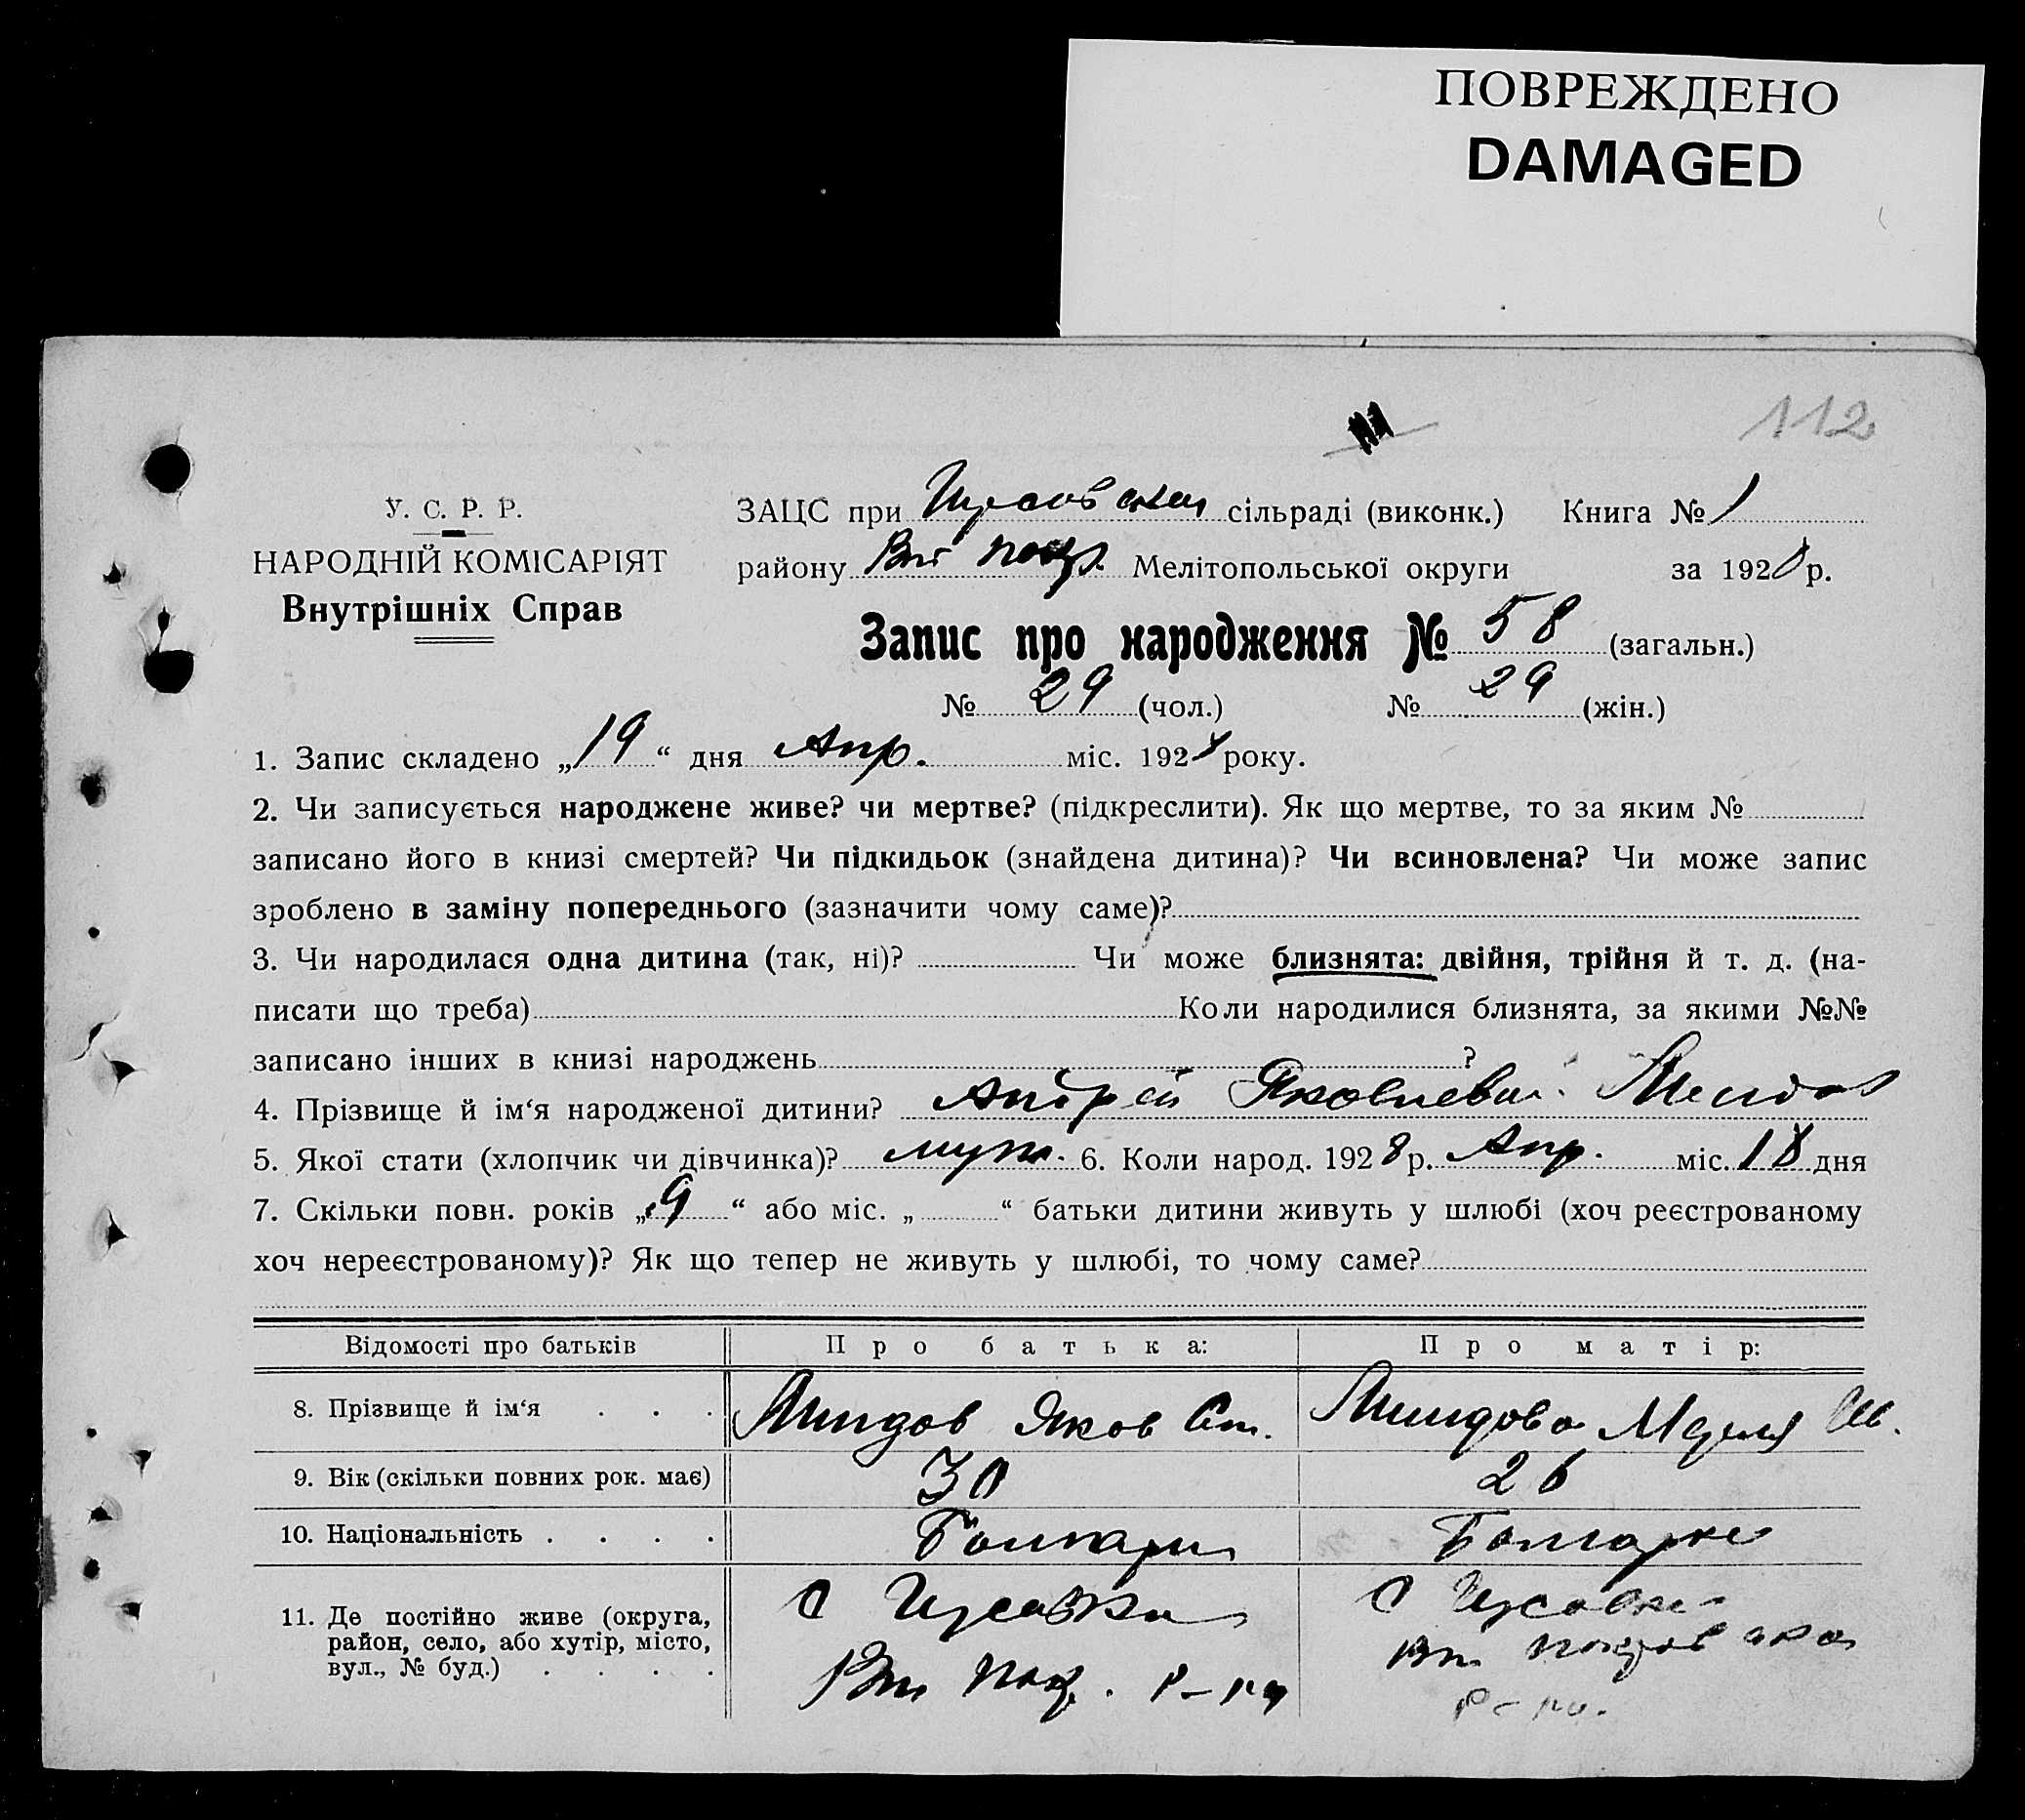 ПОВРЕЖДЕНО
DAMAGED
112
У. С. Р. Р.
НАРОДНІЙ КОМІСАРІЯТ
Внутрішніх Справ
ЗАЦС при сільраді (виконк.) Книга № 1
району Мелітопольської округи за 1928 р.
Запис про народження № 58 (загальн.)
№ 29 (чол.) № 29 (жін.)
1. Запис складено „19“ дня Апр. міс. 1928 року.
2. Чи записується народжене живе? чи мертве? (підкреслити). Як що мертве, то за яким №
записано його в книзі смертей? Чи підкидьок (знайдена дитина)? Чи всиновлена? Чи може запис
зроблено в заміну попереднього (зазначити чому саме)?
3. Чи народилася одна дитина (так, ні)? Чи може близнята: двійня, трійня й т. д. (на-
писати що треба) Коли народилися близнята, за якими №№
записано інших в книзі народжень ?
4. Прізвище й ім‘я народженої дитини? Андрей
5. Якої стати (хлопчик чи дівчинка)? муж. 6. Коли народ. 1928 р. Апр. міс. 18 дня
7. Скільки повн. років „9“ або міс. „ “ батьки дитини живуть у шлюбі (хоч реєстрованому
хоч нереєстрованому)? Як що тепер не живуть у шлюбі, то чому саме?
Відомості про батьків Про батька: Про матір:
8. Прізвище й ім‘я . . . Яков Ст.
9. Вік (скільки повних рок. має) 30 26
10. Національність . . . . Болгарка
11. Де постійно живе (округа,
район, село, або хутір, місто,
вул., № буд.) . . . .
р-на
р-на.